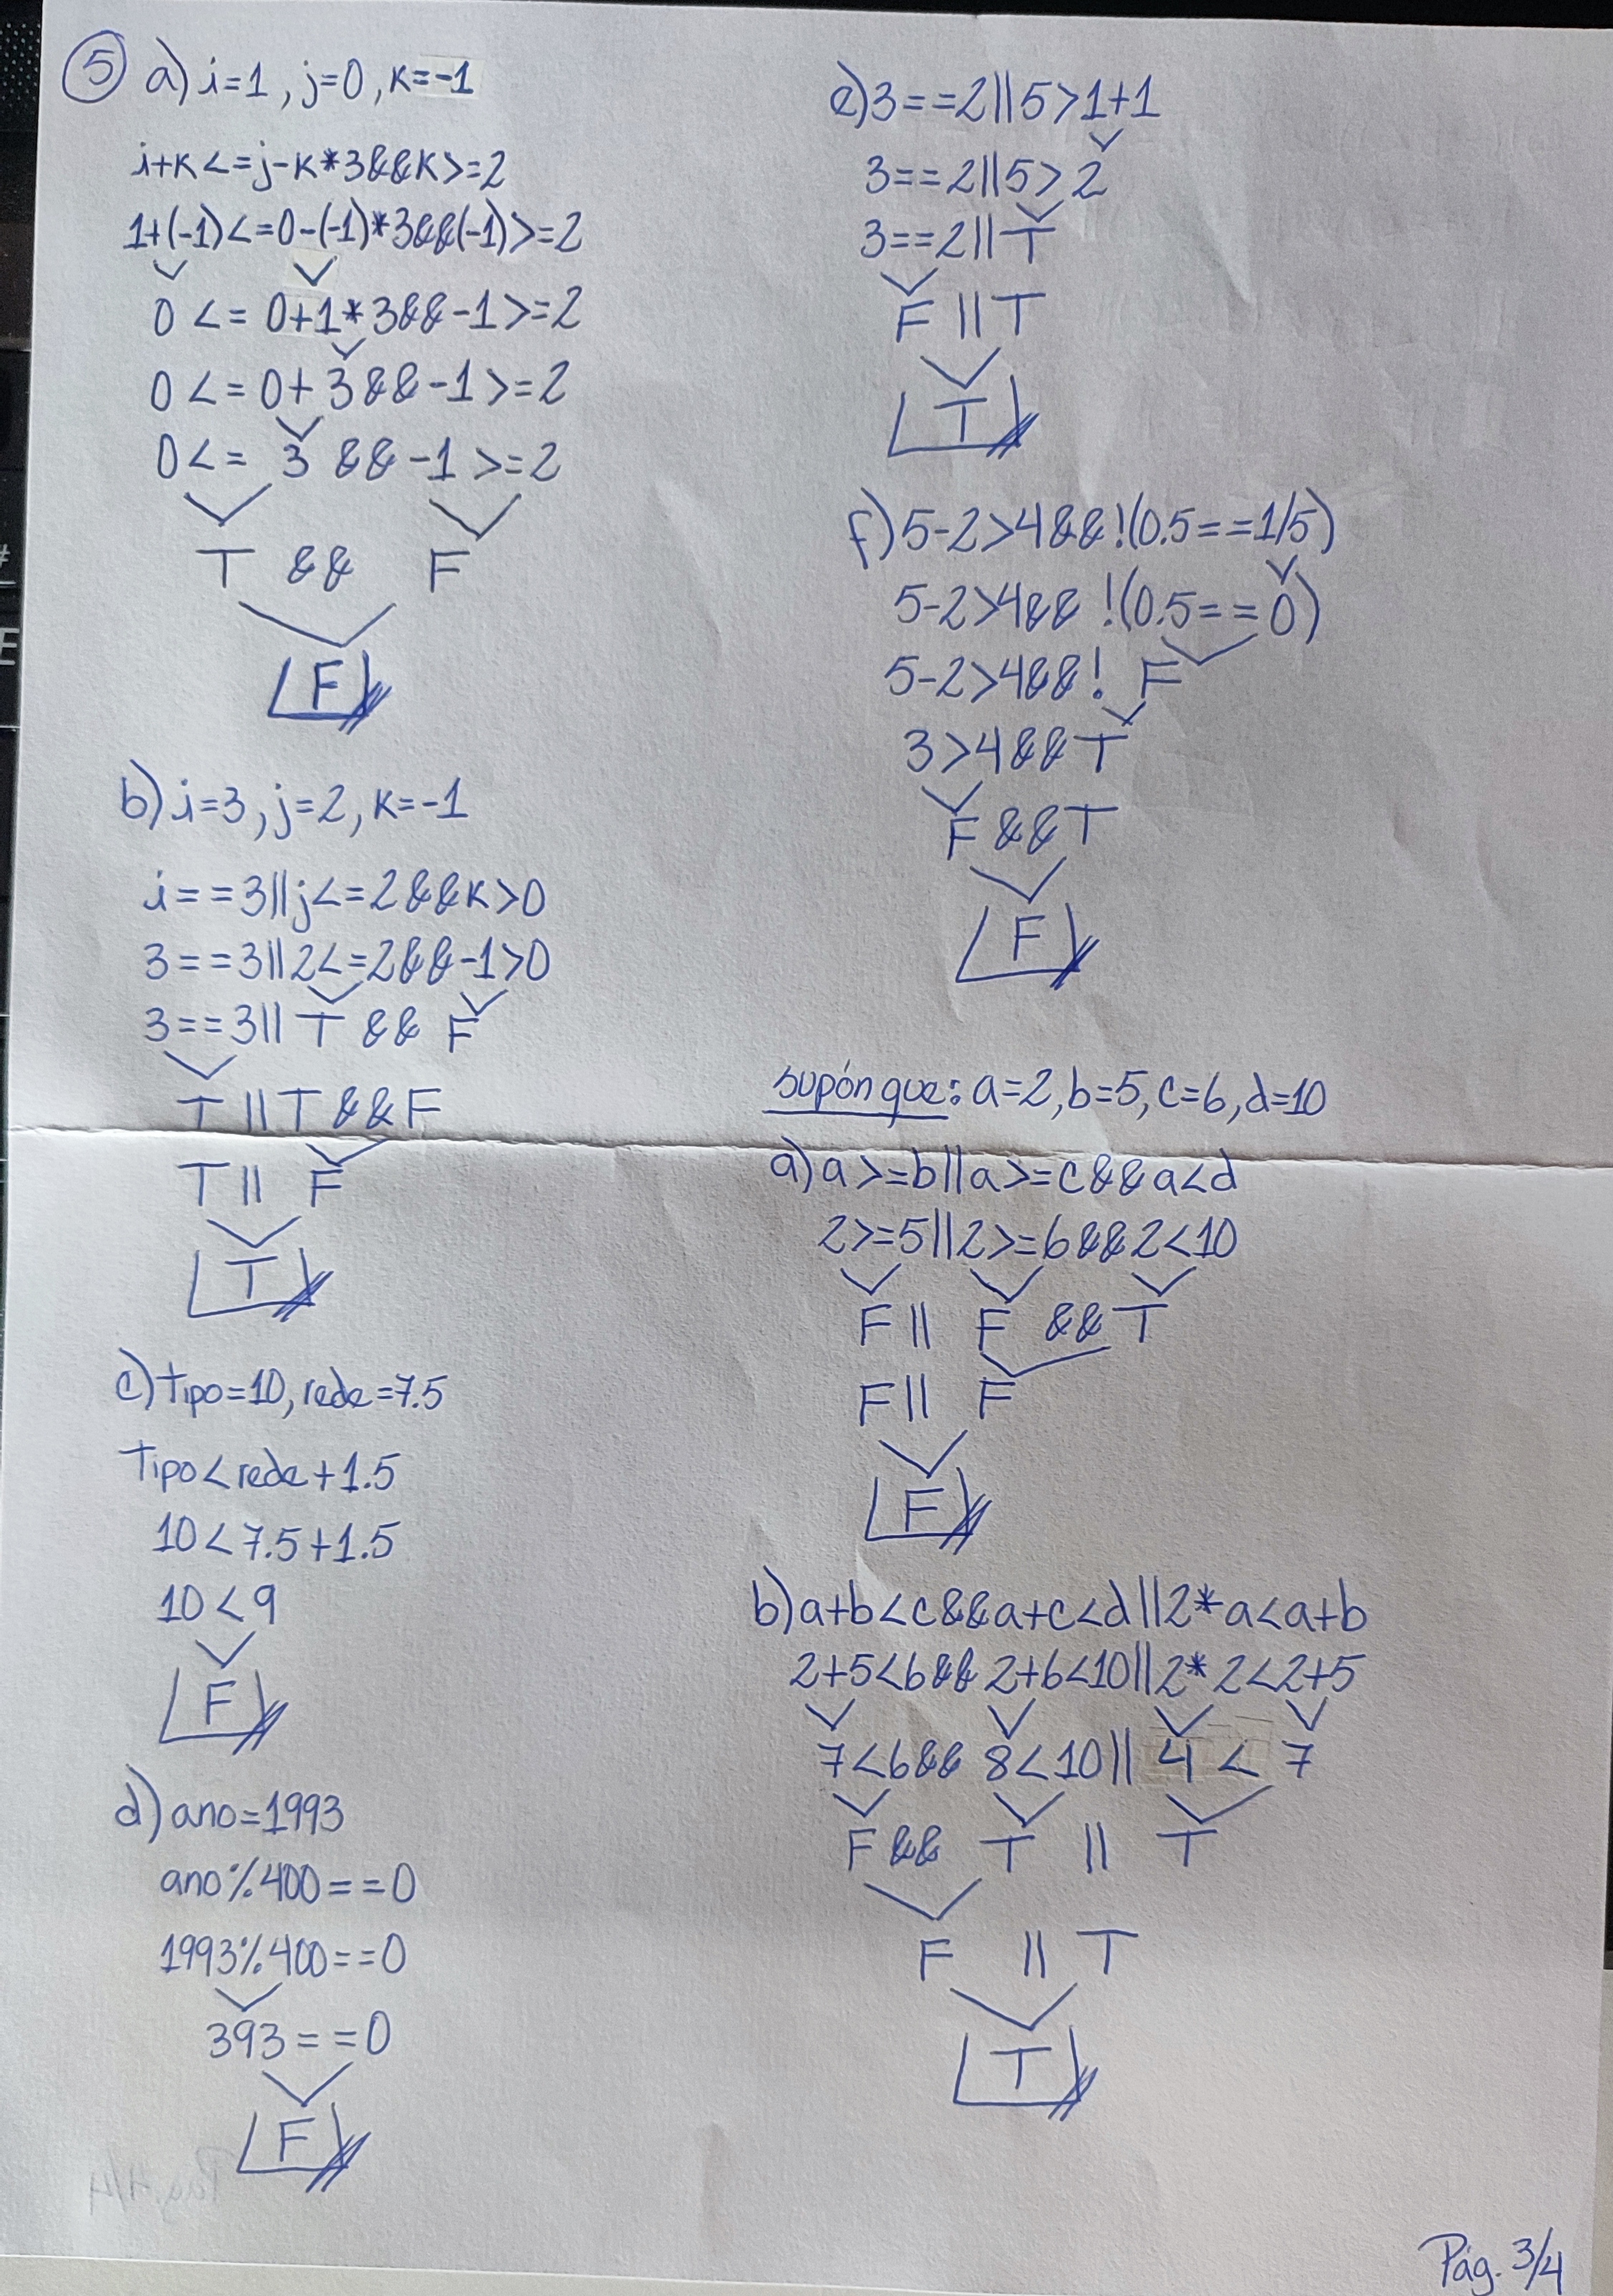 5 a) i=1, j=0, k=-1
i+k<=j-k*3&&k>=2
1+(-1)<=0-(-1)*3&&(-1)>=2
0 <= 0+1*3&&-1>=2
0 <= 0+3&&-1>=2
0<= 3 && -1 >=2
T && F
F
b) i=3, j=2, k=-1
i==3||j<=2&&k>0
3==3||2<=2&&-1>0
3==3|| T && F
T||T&&F
T|| F
T
c) tipo=10, rede=7.5
Tipo<rede+1.5
10<7.5+1.5
10<9
F
d) ano=1993
ano%400==0
1993%400==0
393==0
F
e) 3==2||5>1+1
3==2||5>2
3==2||T
F||T
T
f) 5-2>4&&!(0.5==1/5)
5-2>4&& !(0.5==0)
5-2>4&&! F
3>4&&T
F&&T
F
supón que: a=2, b=5, c=6, d=10
a) a>=b||a>=c&&a<d
2>=5||2>=6&&2<10
F|| F && T
F|| F
F
b) a+b<c&&a+c<d||2*a<a+b
2+5<6&&2+6<10||2*2<2+5
7<6&& 8<10|| 4 < 7
F&& T || T
F || T
T
Pág. 3/4
Pág. 4/4